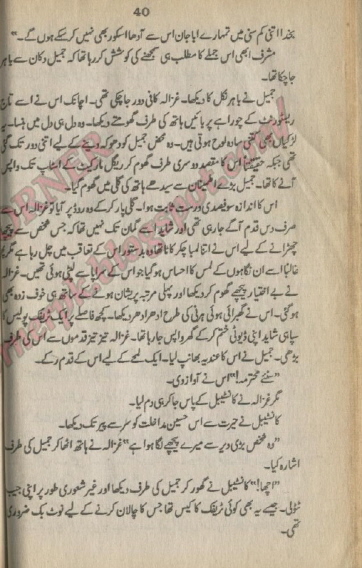 40
بخدا اتنی کم سنی میں تمہارے ابا جان اس سے آدھا اسکور بھی نہیں کر سکے ہوں گے۔"
مشرف ابھی اس جملے کا مطلب ہی سمجھنے کی کوشش کر رہا تھا کہ جمیل دکان سے باہر
جا چکا تھا۔
جمیل نے باہر نکل کر دیکھا۔ غزالہ کافی دور جا چکی تھی۔ اچانک اس نے اسے تاج
ریسٹورنٹ کے چوراہے پر بائیں ہاتھ کی طرف گھومتے دیکھا۔ وہ دل ہی دل میں ہنسا۔ یہ
لڑکیاں بھی کتنی سادہ لوح ہوتی ہیں۔ وہ محض جمیل کو دھوکہ دینے کے لیے اتنی دور تک گئی
تھی جبکہ حقیقتاً اس کا مقصد دوسری طرف گھوم کر ریگل مارکیٹ کے اسٹاپ تک واپس
آنے کا تھا۔ جمیل بڑے اطمینان سے سیدھے ہاتھ کی گلی میں گھوم گیا۔
اس کا اندازہ سو فیصدی درست ثابت ہوا۔ گلی پار کر کے وہ روڈ پر آیا تو غزالہ اس سے
صرف دس قدم آگے جا رہی تھی اور شاید اسے گمان تک نہیں تھا کہ جس شخص سے پیچھا
چھڑانے کے لیے اس نے اتنا لمبا چکر کاٹا تھا وہ بدستور اس کے تعاقب میں چل رہا ہے مگر پھر
غالباً اسے ان نگاہوں کے لمس کا احساس ہو گیا جو اس کے سراپا سے لپٹی ہوئی تھیں۔ غزالہ
نے بے اختیار پیچھے گھوم کر دیکھا اور پہلی مرتبہ پریشان ہونے کے ساتھ ہی خوف زدہ بھی
ہو گئی۔ اس نے گھبرائی ہوئی ہرنی کی طرح ادھر ادھر دیکھا۔ کچھ فاصلے پر ایک ٹریفک پولیس کا
سپاہی شاید اپنی ڈیوٹی ختم کر کے گھر واپس جا رہا تھا۔ غزالہ تیز تیز قدموں سے اس کی طرف
بڑھی۔ جمیل نے اس کا عندیہ بھانپ لیا۔ ایک لمحے کے لیے اس کے قدم رکے۔
"سنئے محترمہ!" اس نے آواز دی۔
مگر غزالہ نے کانسٹیبل کے پاس جا کر ہی دم لیا۔
کانسٹیبل نے حیرت سے اس حسین مداخلت کو سر سے پیر تک دیکھا۔
"وہ شخص بڑی دیر سے میرے پیچھے لگا ہوا ہے" غزالہ نے ہاتھ اٹھا کر جمیل کی طرف
اشارہ کیا۔
"اچھا!" کانسٹیبل نے گھور کر جمیل کی طرف دیکھا اور غیر شعوری طور پر اپنی جیب
ٹٹولی۔ جیسے یہ بھی کوئی ٹریفک کا کیس تھا جس کا چالان کرنے کے لیے نوٹ بک ضروری
تھی۔